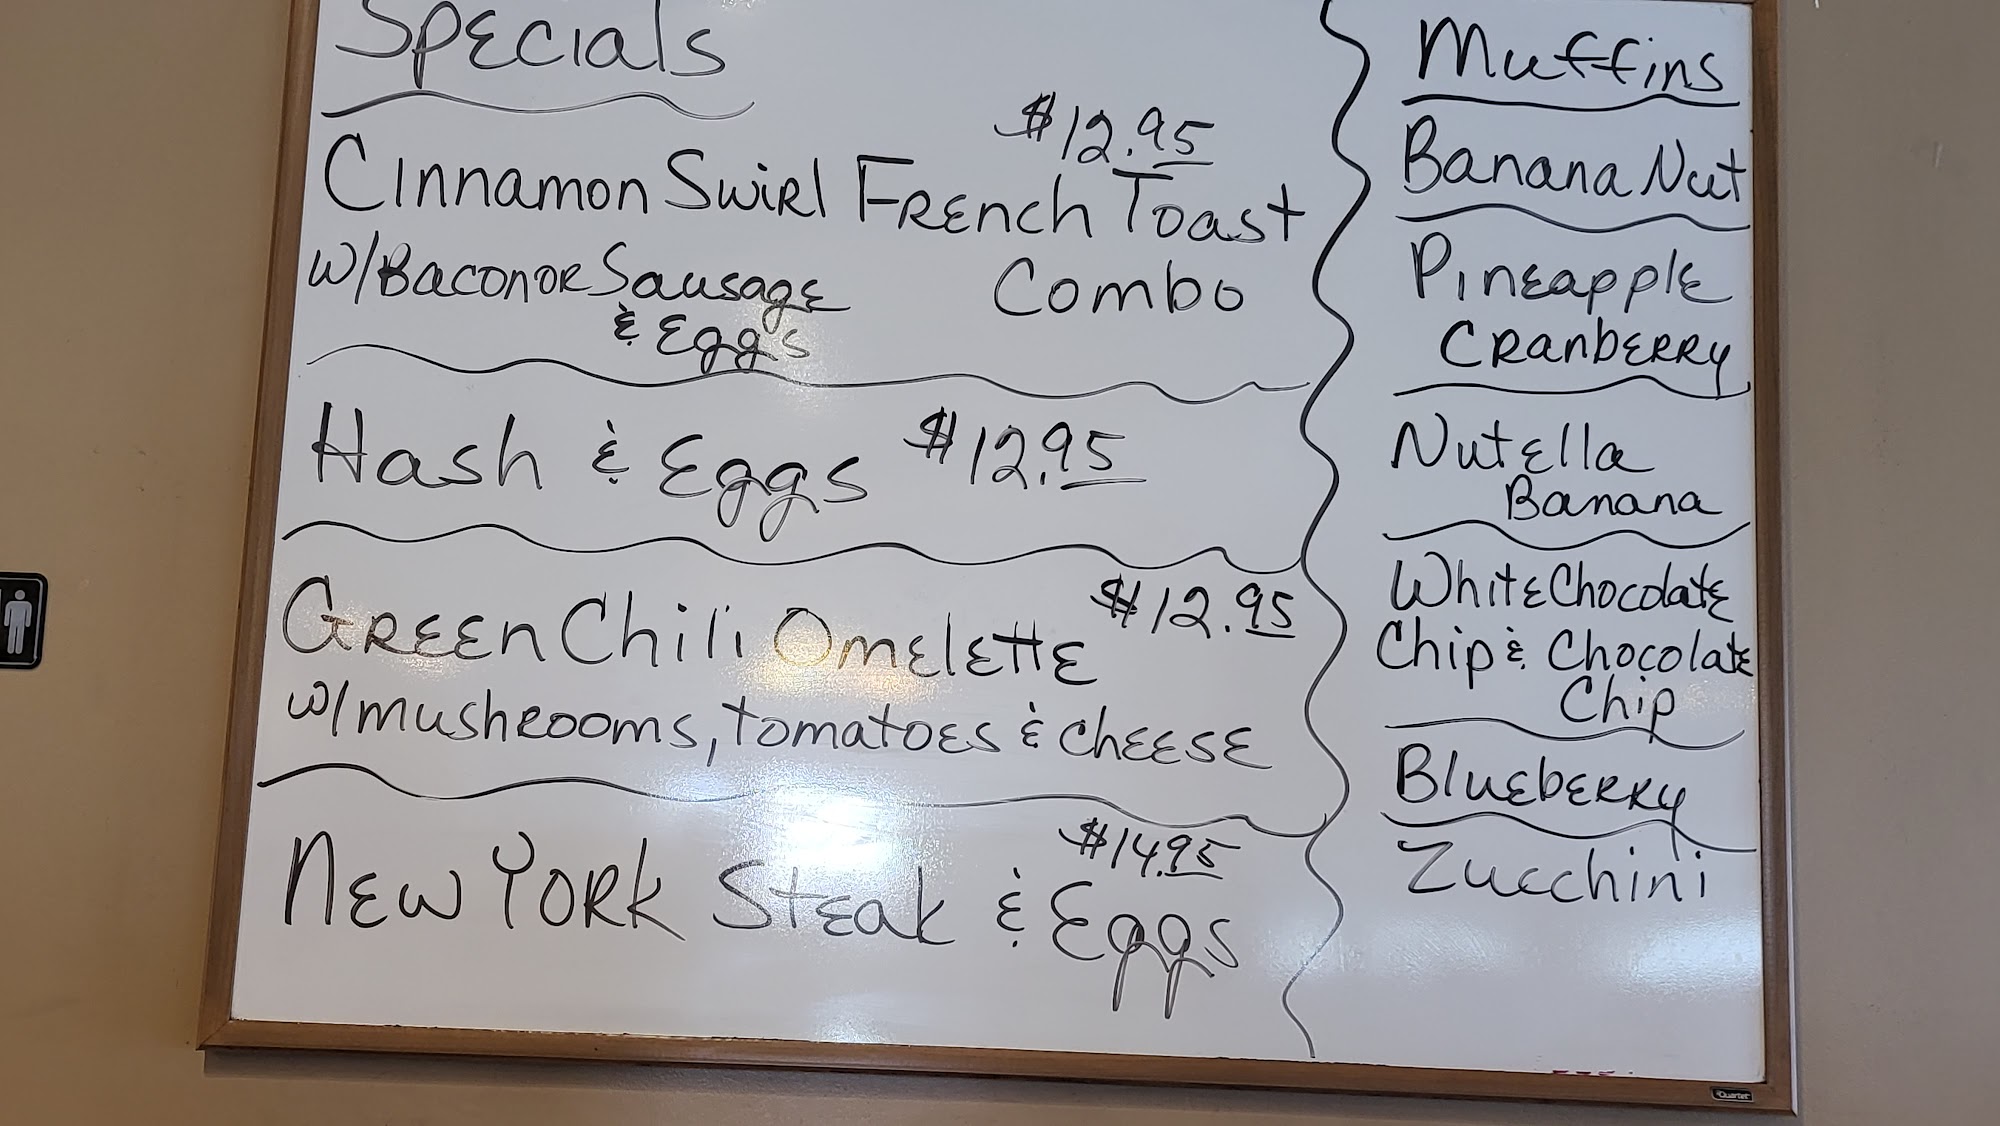 Specials
$12.95
Cinnamon Swirl French Toast
w/Bacon or Sausage Combo
& Eggs
Hash & Eggs $12.95
Green Chili Omelette $12.95
w/mushrooms, tomatoes & cheese
$14.95
New York Steak & Eggs
Muffins
Banana Nut
Pineapple
Cranberry
Nutella
Banana
White Chocolate
Chip & Chocolate
Chip
Blueberry
Zucchini
Quartet